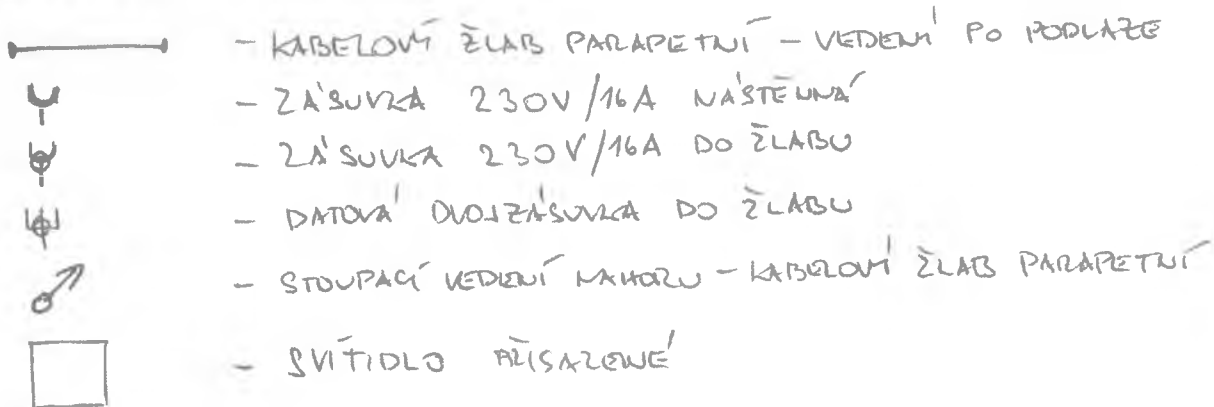 - KABELOVÝ ŽLAB PARAPETNÍ - VEDENÍ PO PODLAZE
- ZÁSUVKA 230V/16A NÁSTĚNNÁ
- ZÁSUVKA 230V/16A DO ŽLABU
- DATOVÁ DVOJZÁSUVKA DO ŽLABU
- STOUPACÍ VEDENÍ NAHORU - KABELOVÝ ŽLAB PARAPETNÍ
- SVÍTIDLO PŘISAZENÉ